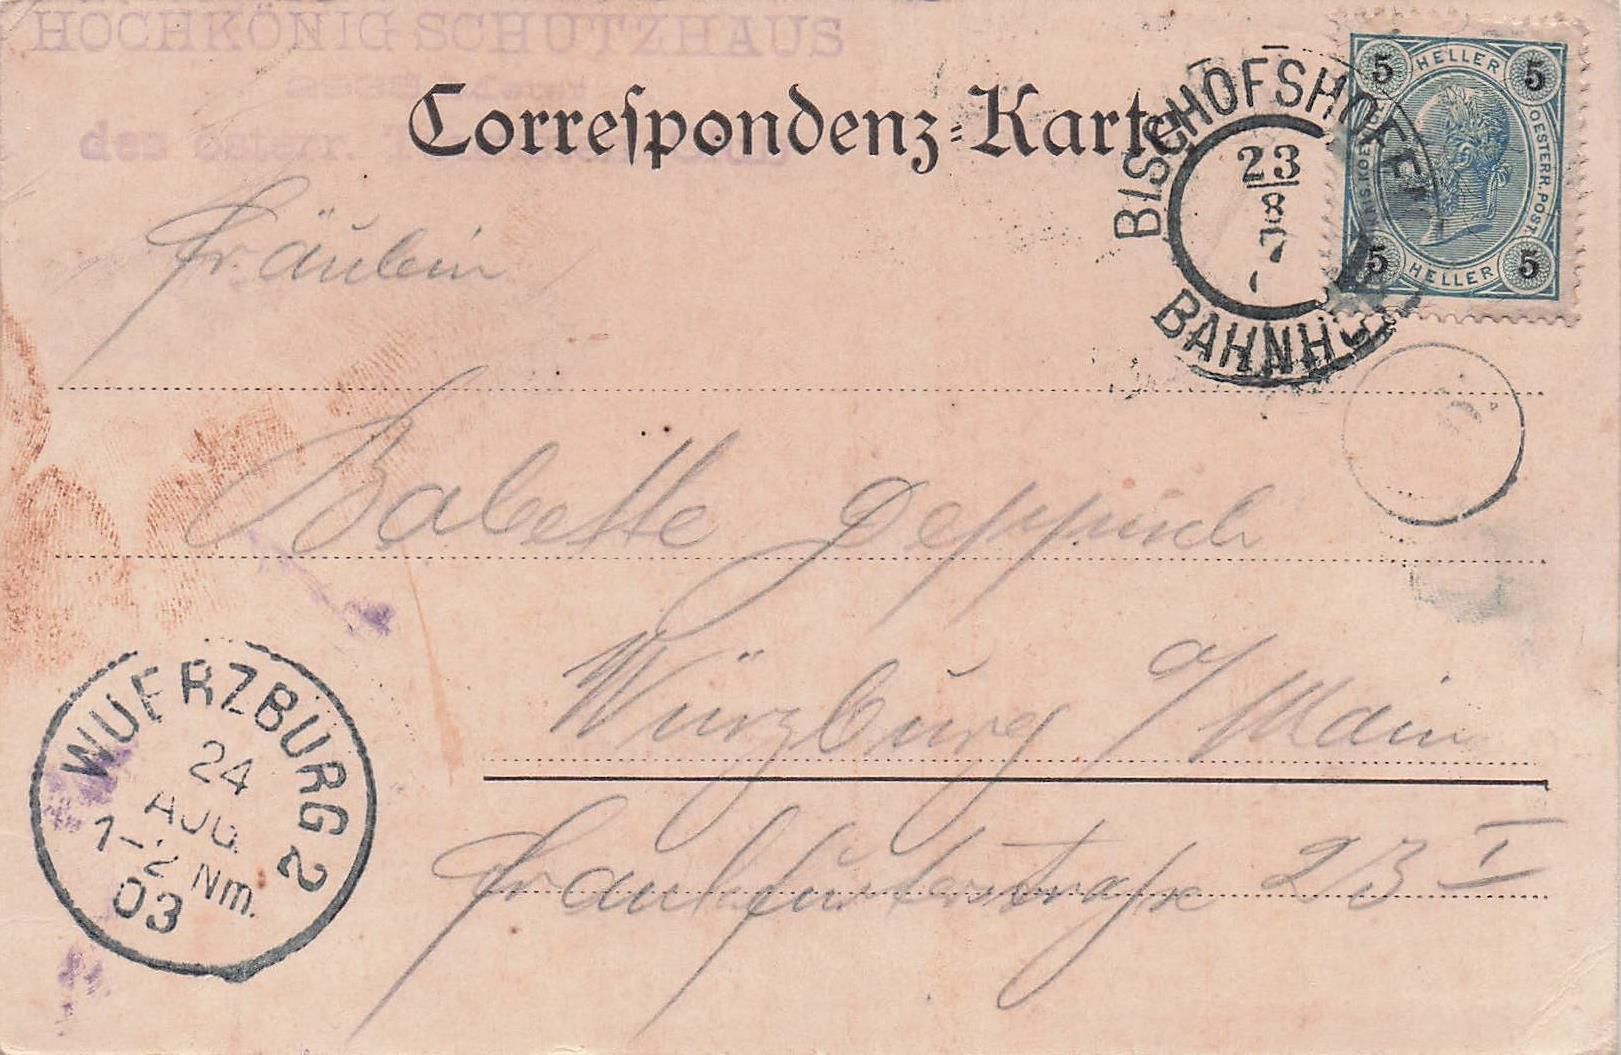 HOCHKÖNIG SCHUTZHAUS
des österr.
Correspondenz-Karte
BISCHOFSHOFEN
23
8
7
BAHNHOF
5 HELLER 5
OESTERR. POST.
5 HELLER 5
Fräulein
Babette Deppisch
Würzburg a/Main
Frankfurterstraße 23 I
WUERZBURG 2
24
AUG
1-2 Nm.
03